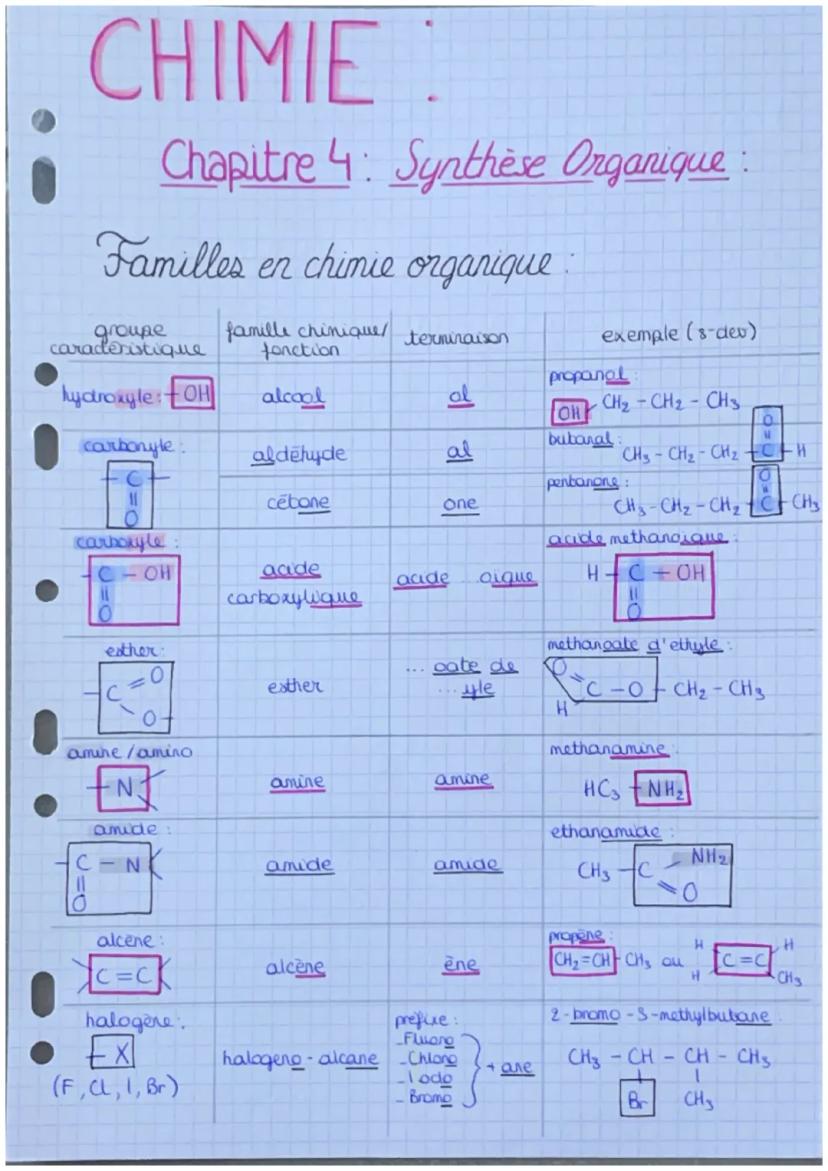 CHIMIE :
Chapitre 4 : Synthèse Organique :
Familles en chimie organique :
groupe caractéristique | famille chimique/ fonction | terminaison | exemple (s-dev)
hydroxyle : - OH | alcool | ol | propanol :
OH - CH₂ - CH₂ - CH₃
carbonyle :
- C -
||
O
aldéhyde | al | butanal :
CH₃ - CH₂ - CH₂ - C - H
||
O
cétone | one | pentanone :
CH₃ - CH₂ - CH₂ - C - CH₃
||
O
carboxyle :
- C - OH
||
O
acide carboxylique | acide oique | acide methanoique :
H - C - OH
||
O
esther :
- C = O
\ O -
esther | ... oate de ... yle | methanoate d'ethyle :
O = C - O - CH₂ - CH₃
H
amine / amino
- N <
amine | amine | methanamine :
HC₃ - NH₂
amide :
- C - N <
||
O
amide | amide | ethanamide :
CH₃ - C - NH₂
= O
alcène :
> C = C <
alcène | ène | propène :
CH₂ = CH - CH₃ ou
H H
C = C
H CH₃
halogène :
- X
(F, Cl, I, Br)
halogeno - alcane
préfixe :
- Fluoro
- Chloro
- Iodo
- Bromo
} + ane
2 - bromo - 3 - methylbutane :
CH₃ - CH - CH - CH₃
Br CH₃